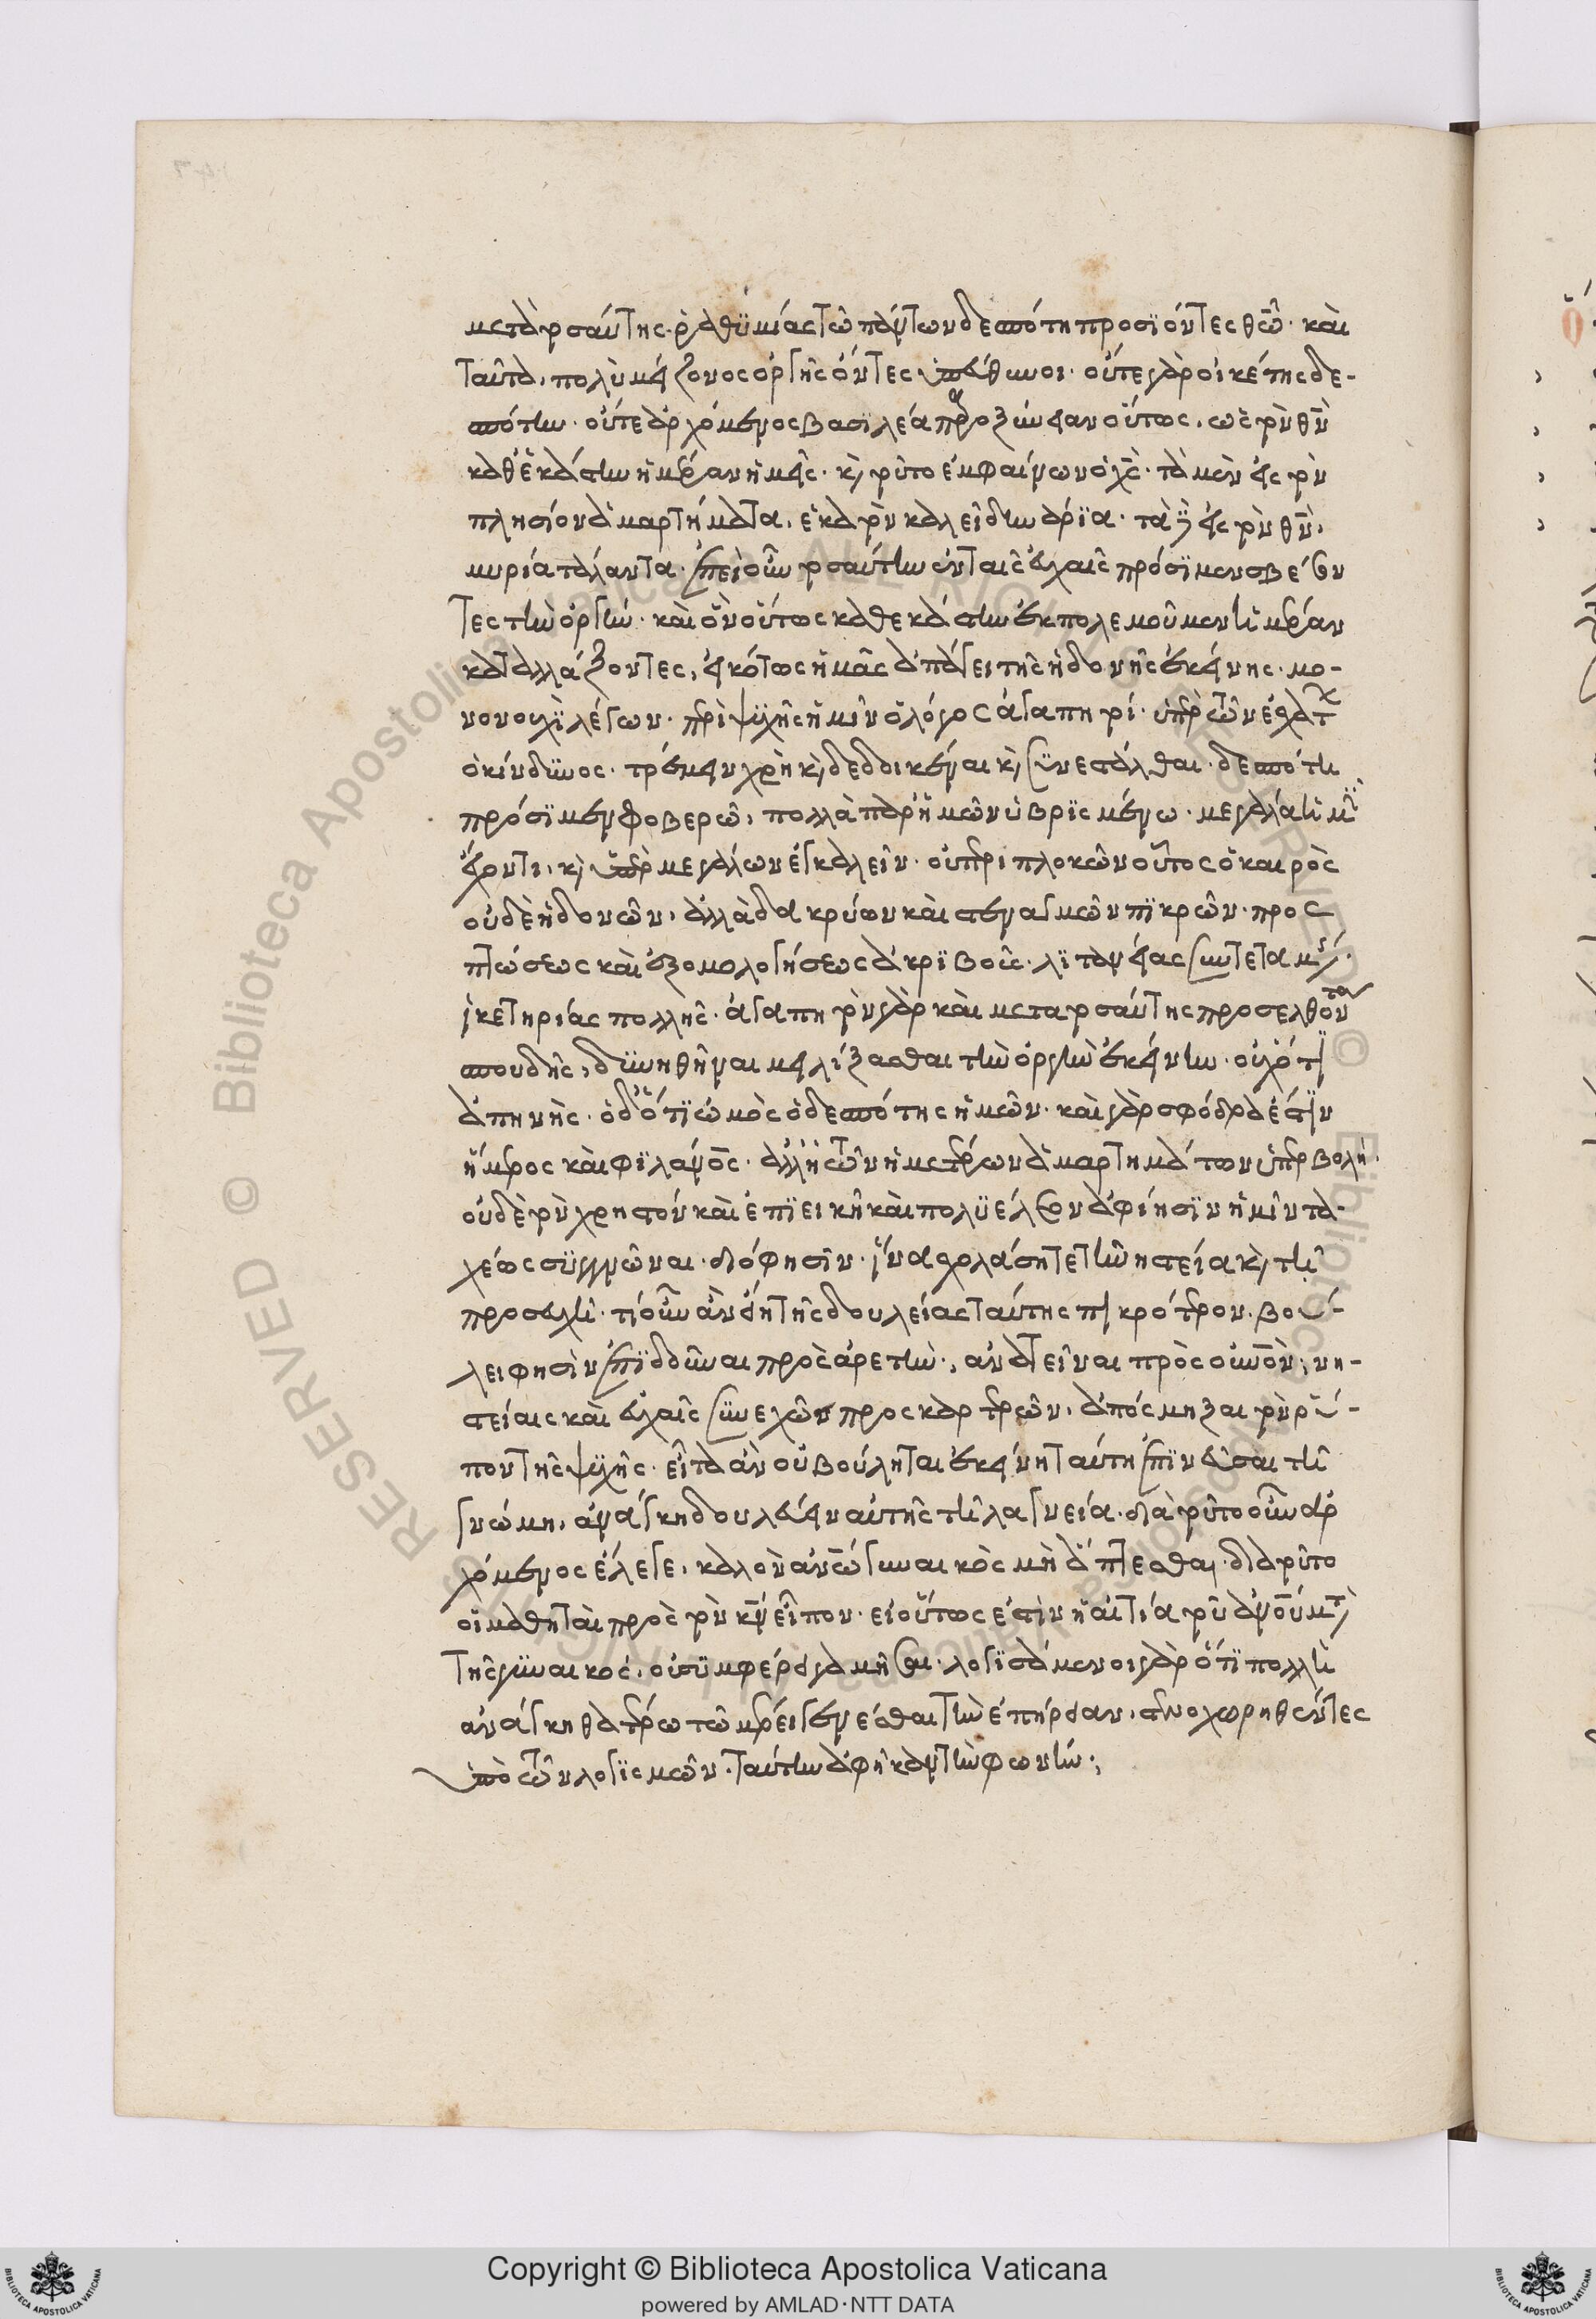 μετὰ τοσαύτης ῥαθυμίας τῷ πάντων δεσπότῃ προσϊόντες θ̅ῶ̅· καὶ
ταῦτα, πολὺ μείζονος ὀργῆς ὄντες ὑπεύθυνοι· οὔτε γὰρ οἰκέτης δε-
σπότην· οὔτε ἀρχόμενος βασϊλέα παροξύνειεν οὕτως, ὡς τὸν θ̅ν̅
καθ' ἑκάστην ἡμέραν ἡμεῖς· κ̀ τοῦτο ἐμφαίνων ὁ χ̅ς̅· τὰ μὲν εἰς τὸν
πλησίον ἁμαρτήματα, ἑκατὸν καλεῖ δηνάρϊα· τὰ δὲ εἰς τὸν θ̅ν̅,
μυρία τάλαντα· ἐπεὶ οὖν τοσαύτην ἐν ταῖς εὐχαῖς πρόσϊμεν σβεννύν
τες τὴν ὀργήν· καὶ ὃν οὕτως καθεκάστην ἐκπολεμοῦμεν ἡμέραν
καταλλάζοντες, εἰκότως ἡμᾶς ἀπάγει τῆς ἡδονῆς ἐκείνης· μο-
νονουχὶ λέγων· περὶ ψυχῆς ἡμῖν ὁ λόγος ἀγαπητοί· ὑπὲρ τῶν ἐσχάτων
ὁ κίνδυνος· τρέμειν χρὴ κ̀ δεδοικέναι κ̀ συνεστάλθαι· δεσπότῃ
πρόσϊμεν φοβερῶ, πολλὰ παρ' ἡμῶν ὑβρϊσμένω· μεγάλα ἡμῖν
ἔχοντι, κ̀ ὑπὲρ μεγάλων ἐγκαλεῖν· οὐ περιπλοκῶν οὗτος ὁ καιρὸς
οὐδὲ ἡδονῶν, ἀλλὰ δακρύων καὶ στεναγμῶν πϊκρῶν· προς
πτώσεως καὶ ἐξομολογήσεως ἀκρϊβοῦς· λϊτανείας συντεταμένης·
ἱκετηρίας πολλῆς· ἀγαπητὸν γὰρ καὶ μετα τοσαύτης προσελθόντα
σπουδῆς, δυνηθῆναι μειλίξασθαι τὴν ὀργὴν ἐκείνην· οὐχ' ὅτϊ
ἀπηνὴς· οὐδ' ὅτϊ ὠμὸς ὁ δεσπότης ἡμῶν· καὶ γὰρ σφόδρα ἐστϊν
ἥμερος καὶ φϊλάνο̅ς̅· ἀλλ' ἡ τῶν ἡμετέρων ἁμαρτημάτων ὑπερβολή,
οὐδὲ τὸν χρηστὸν καὶ ἐπϊεικῆ καὶ πολυέλεον ἀφίησϊν ἡμῖν τα-
χέως συγγνῶναι· διό φησϊν· ἵνα σχολάσητε τῆ νηστεία κ̀ τῆ
προσευχῆ· τί οὖν ἂν εἴη τῆς δουλείας ταύτης πϊκρότερον· βού-
λει φησὶν ἐπϊδοῦναι πρὸς ἀρετὴν, ἀναπτῆναι πρὸς οὐνο̅ν̅, νη-
στείαις καὶ εὐχαῖς συνεχῶς προσκαρτερῶν, ἀποσμῆξαι τὸν ρύ-
πον τῆς ψυχῆς· εἶτα ἂν οὐ βούληται ἐκείνη ταύτη ἐπϊνεῦσαι τῆ
γνώμη, ἀνάγκη δουλεύειν αὐτῆς τῆ λαγνεία· διὰ τοῦτο οὖν ἀρ
χόμενος ἔλεγε, καλὸν ἀνω̅ γυναικὸς μὴ ἅπτεσθαι· διατοῦτο
οἱ μαθηταὶ πρὸς τὸν κ̅ν̅ εἶπον· εἰ οὕτως ἐστὶν ἡ αἰτία τοῦ ἀνου̅ μετὰ
τῆς γυναικὸς, οὐ συμφέρει γαμῆσαι· λογϊσάμενοι γὰρ ὅτϊ πολλὴ
ἀνάγκη θατέρω τῶ μέρει γενέσθαι τὴν ἐπήρειαν, στενοχωρηθέντες
ὑπὸ τῶν λογϊσμῶν· ταύτην ἀφῆκαν τὴν φωνήν: